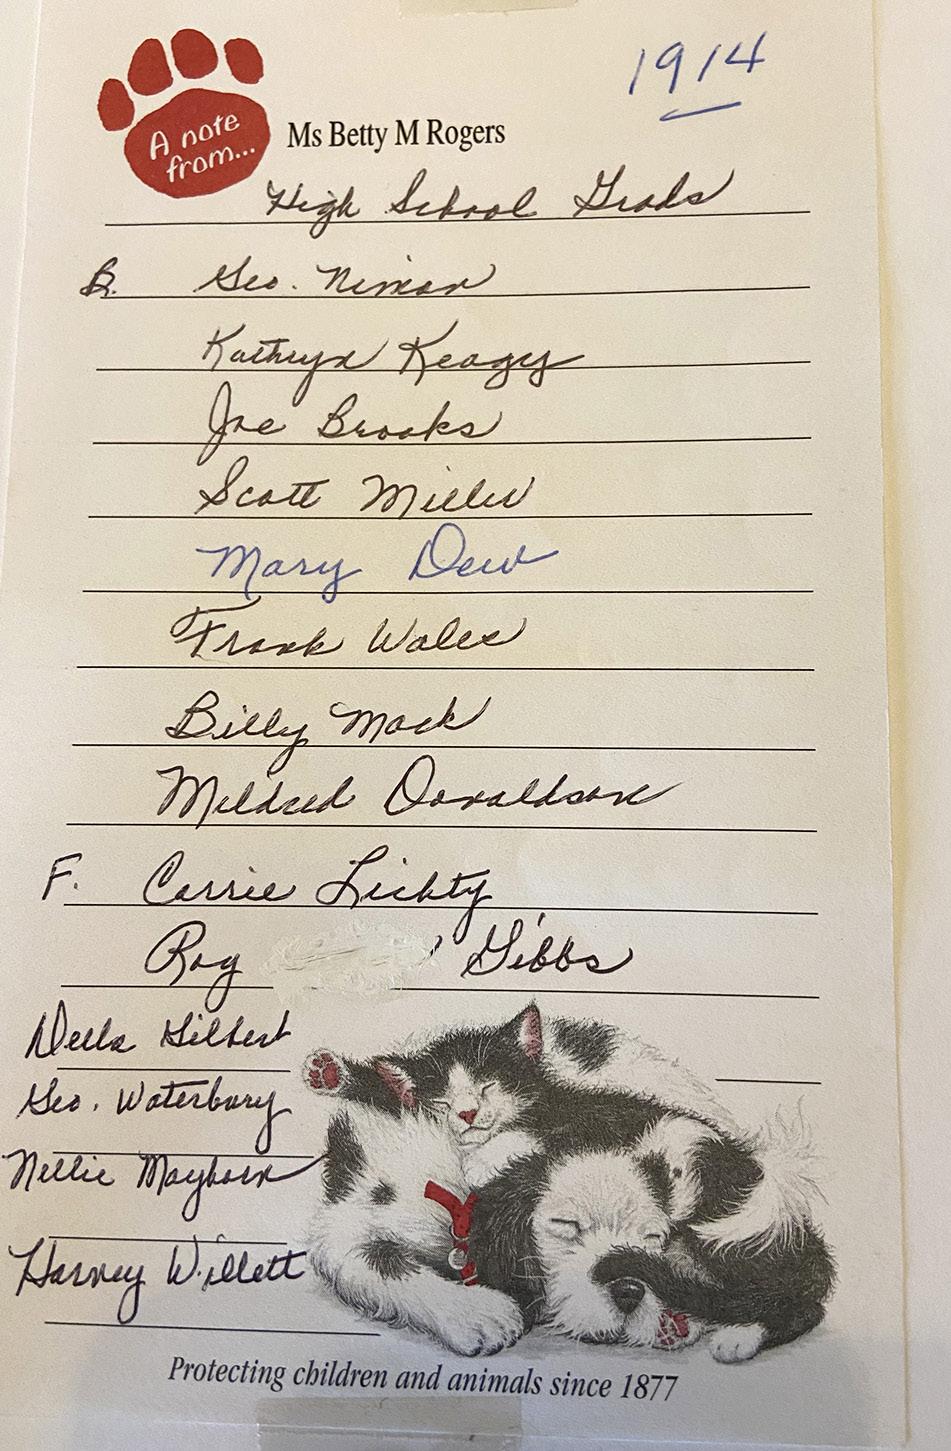 1914
A note
from...
Ms Betty M Rogers
High School Grads
B. Geo. Niman
Kathryn Keagy
Joe Brooks
Scott Miller
Mary Dew
Frank Wales
Billy Mack
Mildred Donaldson
F. Carrie Lichty
Roy Gibbs
Della Gilbert
Geo. Waterbury
Nellie Mayborn
Harvey Willett
Protecting children and animals since 1877